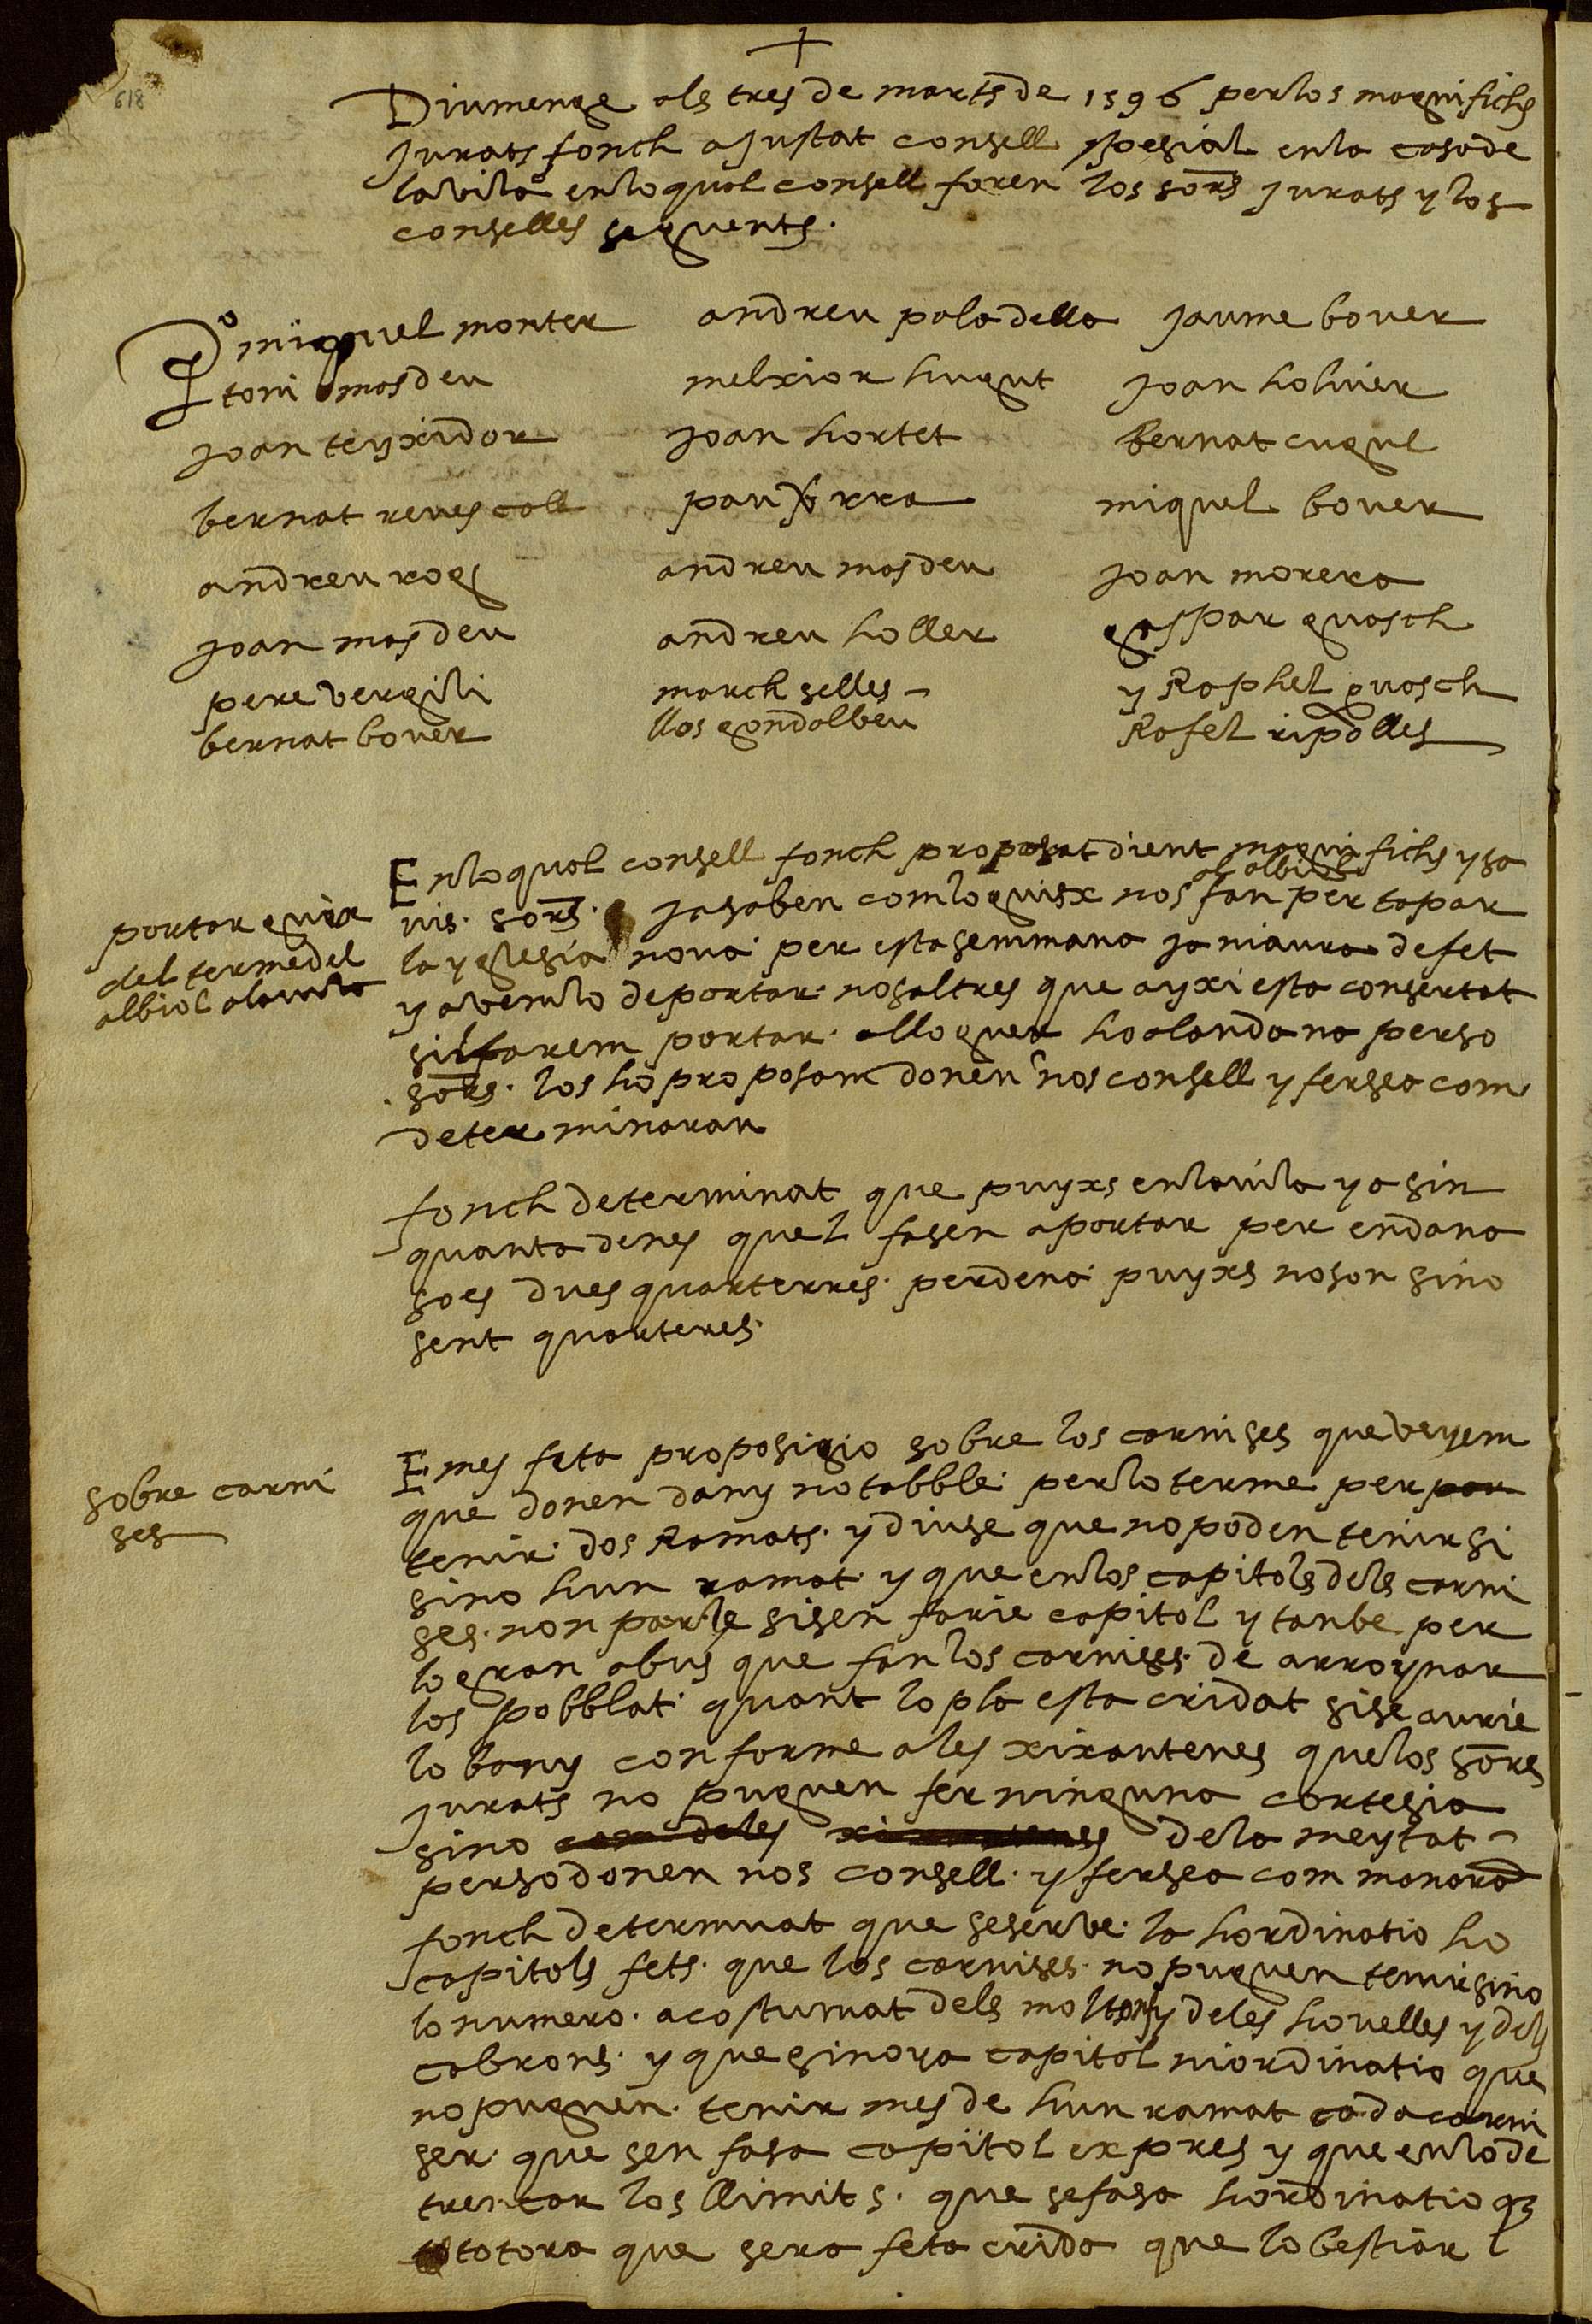 618
Diumenge als tres de marts de 1596 per los magnifichs
Jurats fonch aJustat consell spesial en la casa de
la vila en lo qual consell foren los sors Jurats y los
conselles seguents.
Po miquel monter
toni masdeu
Joan teyxidor
bernat revescoll
andreu roq
Joan masdeu
pere vergili
bernat bover
andreu paladella
melxior hugut
Joan hortet
pau serra
andreu masdeu
andreu holler
march selles
llos gondalbeu
Jaume bover
Joan holiver
bernat cugul
miquel bover
Joan morera
gaspar guasch
y Raphel guasch
Rafel ripolles
En lo qual consell fonch propasat dient magnifichs y sa
al albiol
vis. sors. Ja saben com lo guix nos fan per tapar
la yglesia nova per esta semmana Ja ni aura de fet
y avemlo de portar nosaltres que ayxi esta consertat
sil farem portar. alloguer ho a landana perso
sors. los ho proposam donen nos consell y fersea com
determinaran
portar guix
del terme del
albiol a la vila
fonch determinat que puyxs en la vila y a sin
quanta denes quel fasen aportar per endana
soes dues quarterres. per dena puyxs no son sino
sent quarteres.
Sobre carni
ses
E mes feta proposisio sobre los carnises que veyem
que donen dany notabble per lo terme per par
tenir dos Ramats. y diuse que no poden tenir si
sino hun ramat y que en los capitols dels carni
ses. non parle sisen farie capitol y tanbe per
lo gran abus que fan los carnises. de arroynar
los pobblat quant lo pla esta cridat si se aurie
lo bany conforme a les xixantenes que los sors
Jurats no puguen fer ninguna cortesia
sino de la meytat
perso donen nos consell. y fersea com manara
fonch determinat que se serve. la hordinatio ho
capitols fets. que los carnises. no puguen tenir sino
lo numero. acostumat dels moltons y de les hovelles y dels
cabrons. y que si no ya capitol ni ordinatio que
no puguen. tenir mes de hun ramat cada carni
ser. que sen fasa capitol expres y que en lo de
trencar los llimits. que se fasa hordinatio q
totora que sera feta crida que lo bestiar